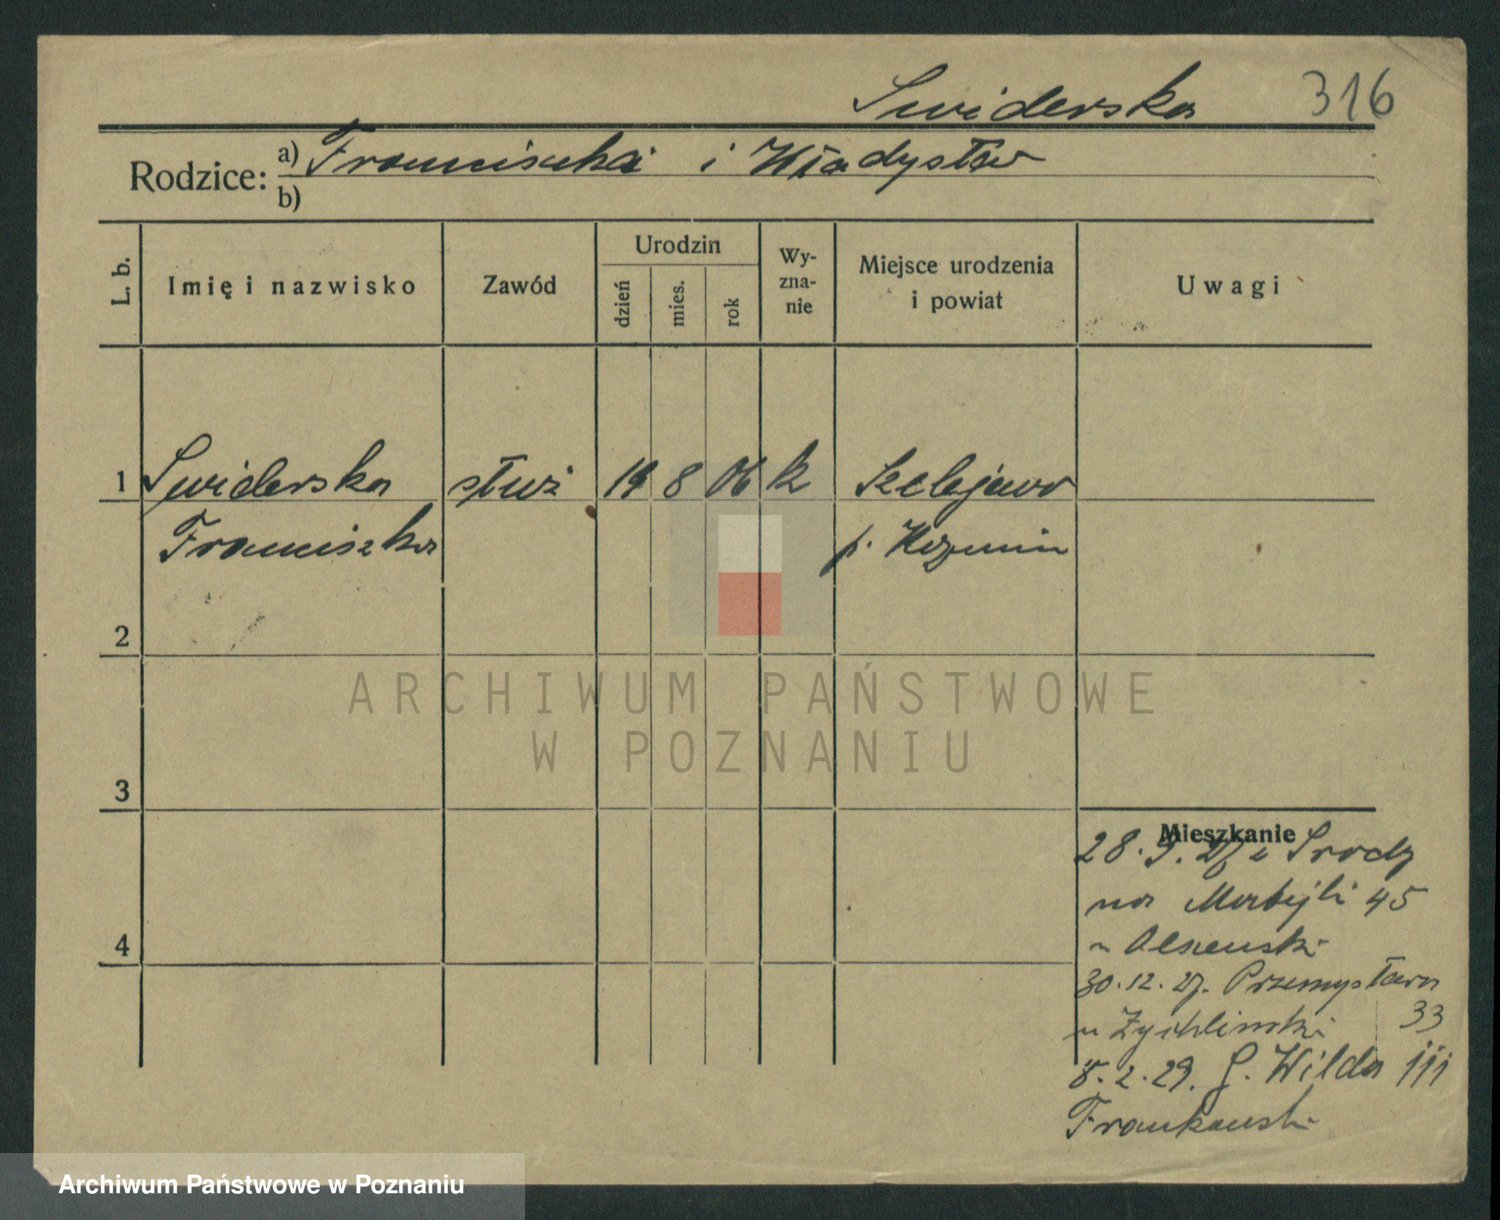 Swiderska 316
Rodzice: a) Franciszka i Władysław
b)
L. b. Imię i nazwisko Zawód Urodzin dzień mies. rok Wy-zna-nie Miejsce urodzenia i powiat Uwagi
1 Swiderska służ 19 8 06 k Szelejewo
Franciszka p. Kozmin
2
ARCHIWUM PAŃSTWOWE
W POZNANIU
3
Mieszkanie
28. 9. 27 z Srody
na Matejki 45
4
u Olszewski
30. 12. 27. Przemysława
u Zychlinski 33
8. 2. 29. G. Wilda 111
Frankowski
Archiwum Państwowe w Poznaniu